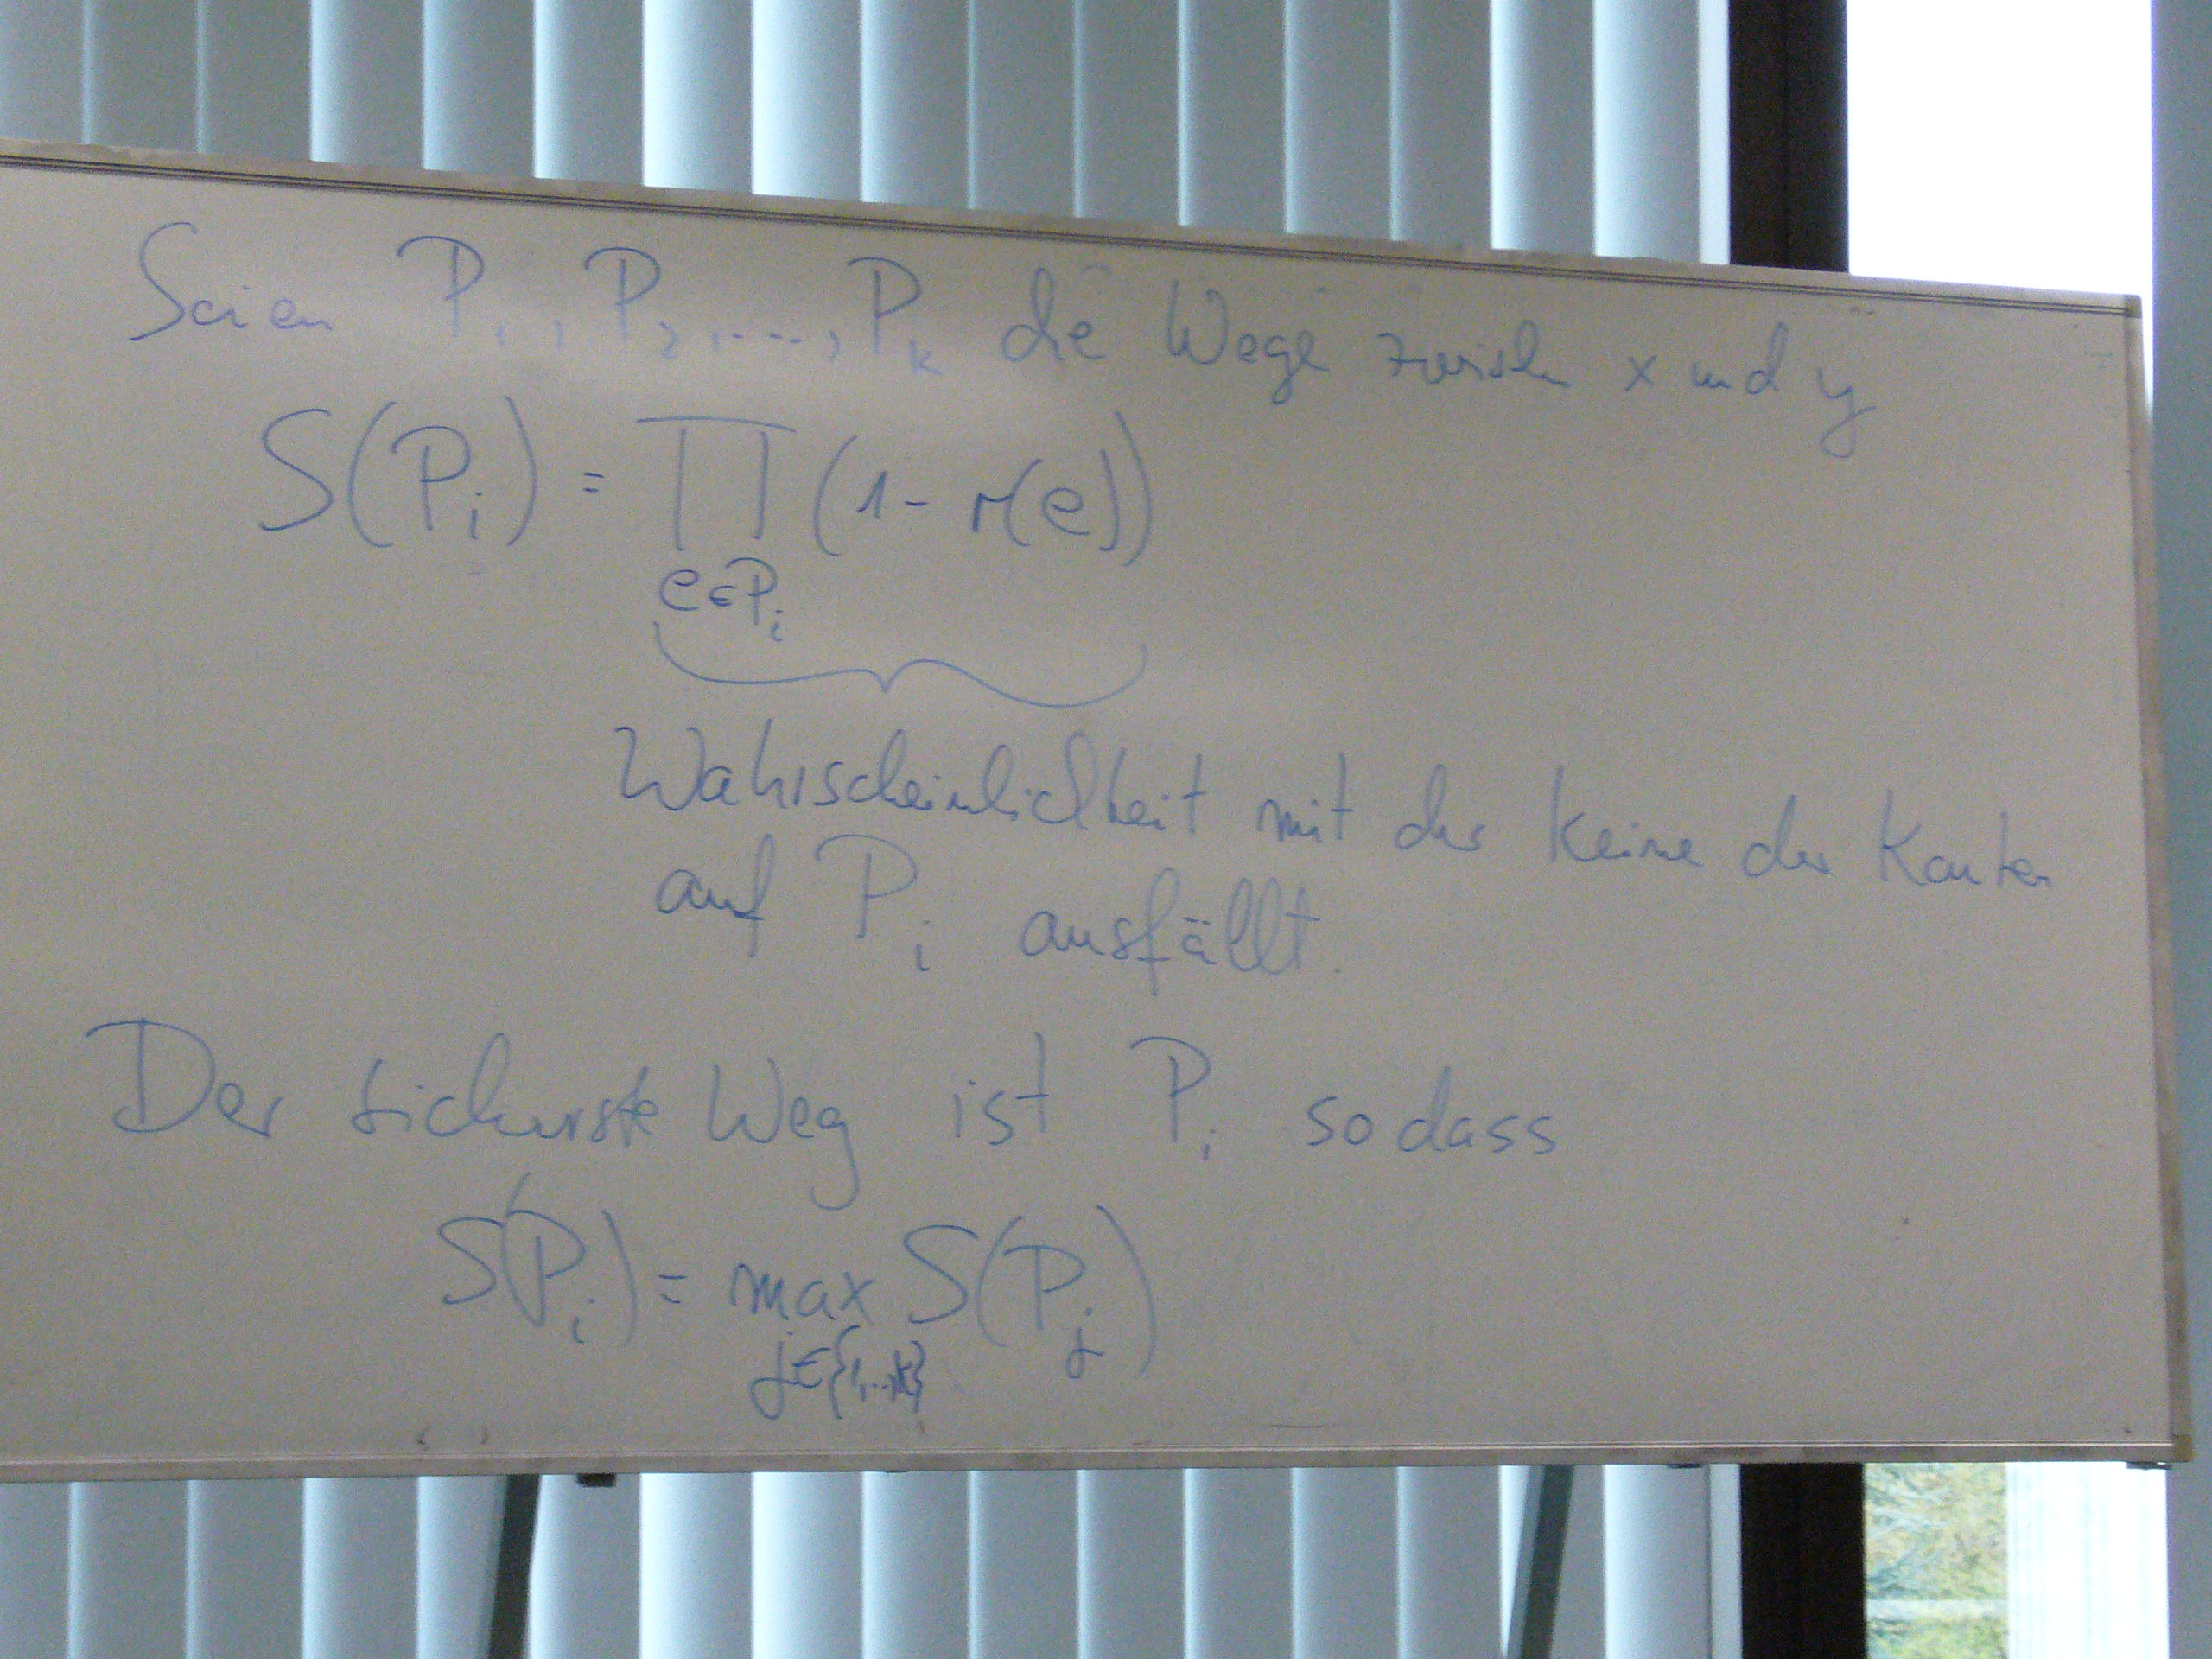 Seien P₁, P₂, ...., Pₖ die Wege zwischen x und y
S(Pᵢ) = ∏ (1 - r(e))
e∈Pᵢ
Wahrscheinlichkeit mit der keine der Kanten
auf Pᵢ ausfällt.
Der sicherste Weg ist Pᵢ sodass
S(Pᵢ) = max S(Pⱼ)
j∈{1,..,k}